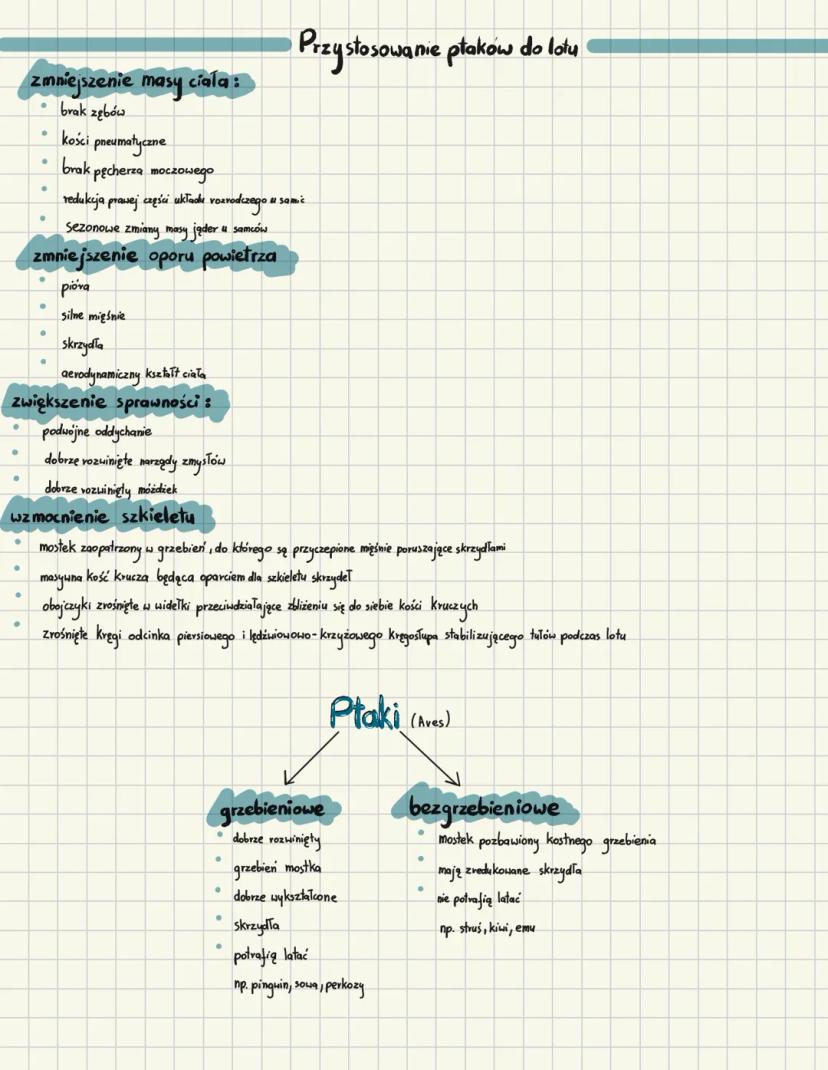 Przystosowanie ptaków do lotu
zmniejszenie masy ciała:
brak zębów
kości pneumatyczne
brak pęcherza moczowego
redukcja prawej części układu rozrodczego u samic
sezonowe zmiany masy jąder u samców
zmniejszenie oporu powietrza
pióra
silne mięśnie
skrzydła
aerodynamiczny kształt ciała
zwiększenie sprawności:
podwójne oddychanie
dobrze rozwinięte narządy zmysłów
dobrze rozwinięty móżdżek
wzmocnienie szkieletu
mostek zaopatrzony w grzebień, do którego są przyczepione mięśnie poruszające skrzydłami
masywna kość krucza będąca oparciem dla szkieletu skrzydeł
obojczyki zrośnięte w widełki przeciwdziałające zbliżeniu się do siebie kości kruczych
zrośnięte kręgi odcinka piersiowego i lędźwiowowo-krzyżowego kręgosłupa stabilizującego tułów podczas lotu
Ptaki (Aves)
grzebieniowe
dobrze rozwinięty
grzebień mostka
dobrze wykształcone
skrzydła
potrafią latać
np. pingwin, sowa, perkozy
bezgrzebieniowe
mostek pozbawiony kostnego grzebienia
mają zredukowane skrzydła
nie potrafią latać
np. struś, kiwi, emu